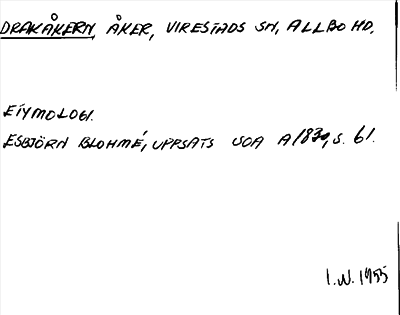 DRAKÅKERN, ÅKER, VIRESTADS SN, ALLBO HD.
ETYMOLOGI.
ESBJÖRN BLOHMÉ, UPPSATS SOA A1830, S. 61.
I.N. 1955